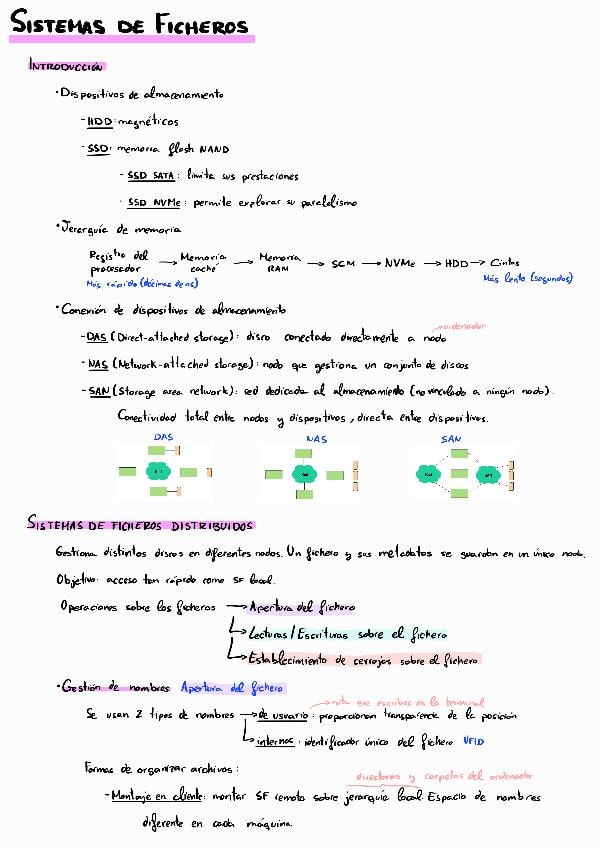 SISTEMAS DE FICHEROS
INTRODUCCIÓN
• Dispositivos de almacenamiento
- HDD: magnéticos
- SSD: memoria flash NAND
- SSD SATA: limita sus prestaciones
- SSD NVMe: permite explorar su paralelismo
• Jerarquía de memoria
Registro del procesador → Memoria caché → Memoria RAM → SCM → NVMe → HDD → Cintas
Más rápido (décimas de ns) Más lento (segundos)
• Conexión de dispositivos de almacenamiento
ordenador
- DAS (Direct-attached storage): disco conectado directamente a nodo
- NAS (Network-attached storage): nodo que gestiona un conjunto de discos
- SAN (Storage area network): red dedicada al almacenamiento (no vinculado a ningún nodo).
Conectividad total entre nodos y dispositivos, directa entre dispositivos.
DAS NAS SAN
Red Red Red SAN
SISTEMAS DE FICHEROS DISTRIBUIDOS
Gestiona distintos discos en diferentes nodos. Un fichero y sus metadatos se guardan en un único nodo.
Objetivo: acceso tan rápido como SF local.
Operaciones sobre los ficheros → Apertura del fichero
→ Lecturas/Escrituras sobre el fichero
→ Establecimiento de cerrojos sobre el fichero
• Gestión de nombres Apertura del fichero
ruta que escribes en la terminal
Se usan 2 tipos de nombres → de usuario: proporcionan transparencia de la posición
→ internos: identificador único del fichero UFID
Formas de organizar archivos:
directorios y carpetas del ordenador
- Montaje en cliente: montar SF remoto sobre jerarquía local. Espacio de nombres
diferente en cada máquina.